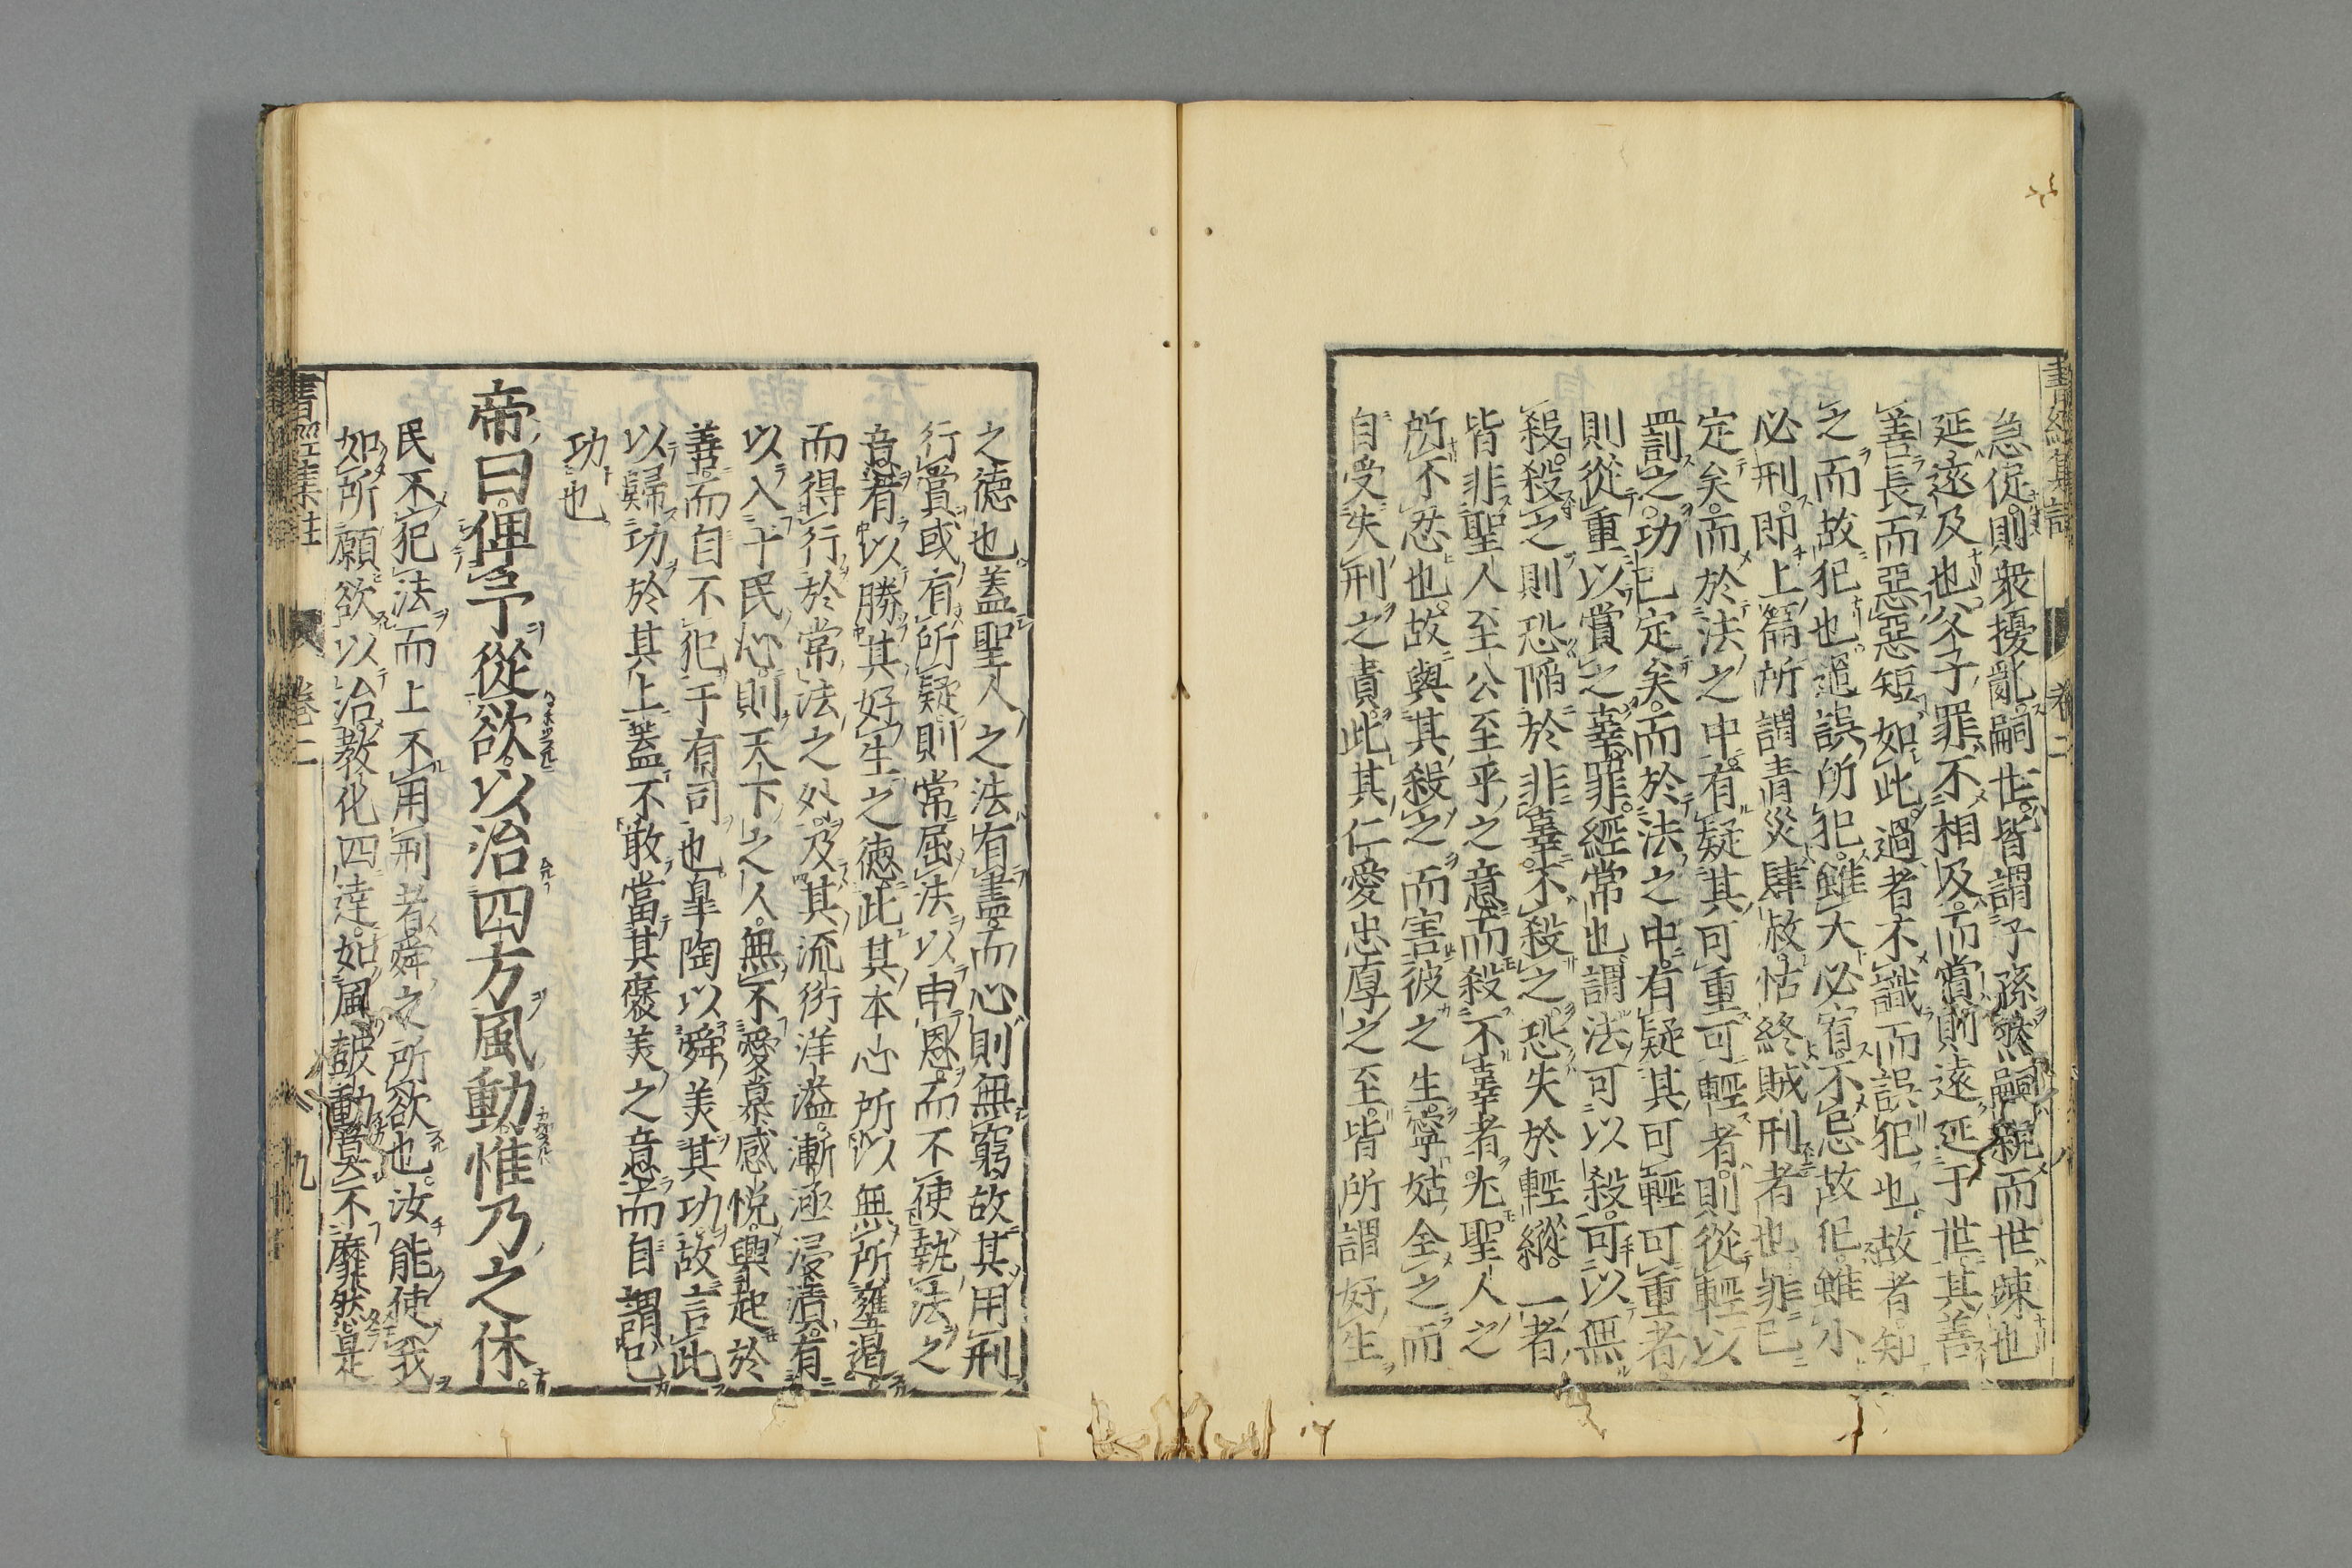 書經集註 卷二 八
急促則衆擾亂嗣世皆謂子孫然嗣親而世疎也
延遠及也父子罪不相及而賞則遠延于世其善
善長而惡惡短如此過者不識而誤犯也故者知
之而故犯也過誤所犯雖大必宥不忌故犯雖小
必刑即上篇所謂眚災肆赦怙終賊刑者也罪已
定矣而於法之中有疑其可重可輕者則從輕以
罰之功已定矣而於法之中有疑其可輕可重者
則從重以賞之辜罪經常也謂法可以殺可以無
殺殺之則恐陷於非辜不殺之恐失於輕縱二者
皆非聖人至公至平之意而殺不辜者尤聖人之
所不忍也故與其殺之而害彼之生寧姑全之而
自受失刑之責此其仁愛忠厚之至皆所謂好生
之德也蓋聖人之法有盡而心則無窮故其用刑
行賞或有所疑則常屈法以申恩而不使執法之
意有以勝其好生之德此其本心所以無所壅遏
而得行於常法之外及其流衍洋溢漸涵浸漬有
以入于民心則天下之人無不愛慕感悅興起於
善而自不犯于有司也皐陶以舜美其功故言此
以歸功於其上蓋不敢當其褒美之意而自謂己
功也
帝曰俾予從欲以治四方風動惟乃之休
民不犯法而上不用刑者舜之所欲也汝能使我
如所願欲以治敎化四達如風鼓動莫不靡然是
書經集註 卷二 九